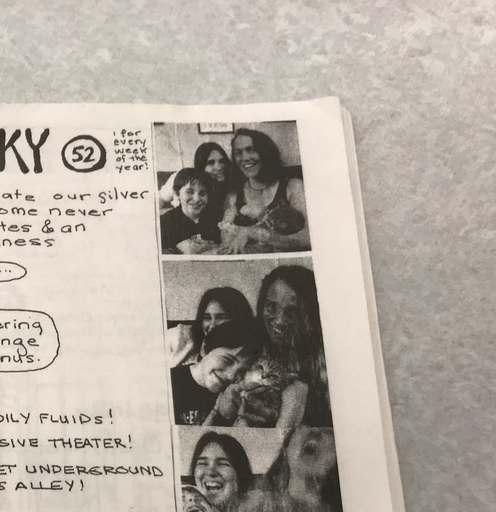 KY 52
1 for
every
week
of the
year!
ate our silver
ome never
tes & an
ness
...
ering
nge
nus.
DILY FLUIDS!
SIVE THEATER!
ET UNDERGROUND
S ALLEY!